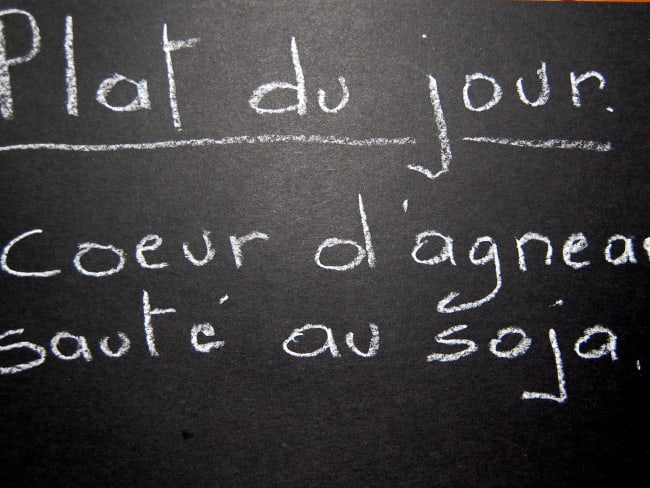 Plat du jour.
coeur d'agneau
sauté au soja.